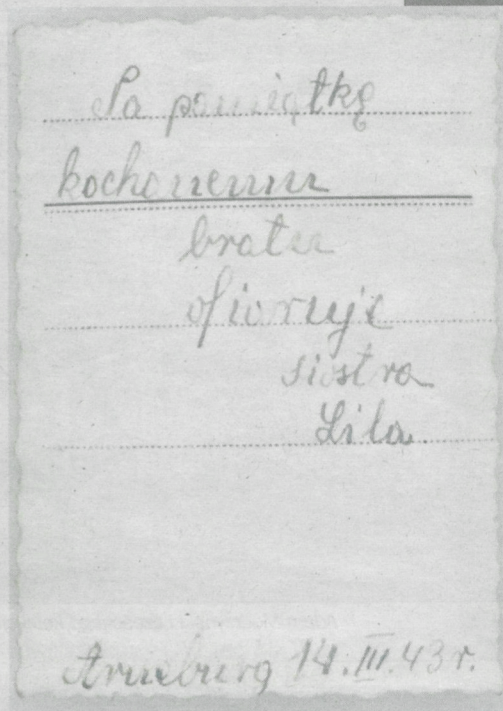 Na pamiątkę
kochanemu
bratu
ofiaruje
siostra
Lila.
Arneburg 14.III.43 r.